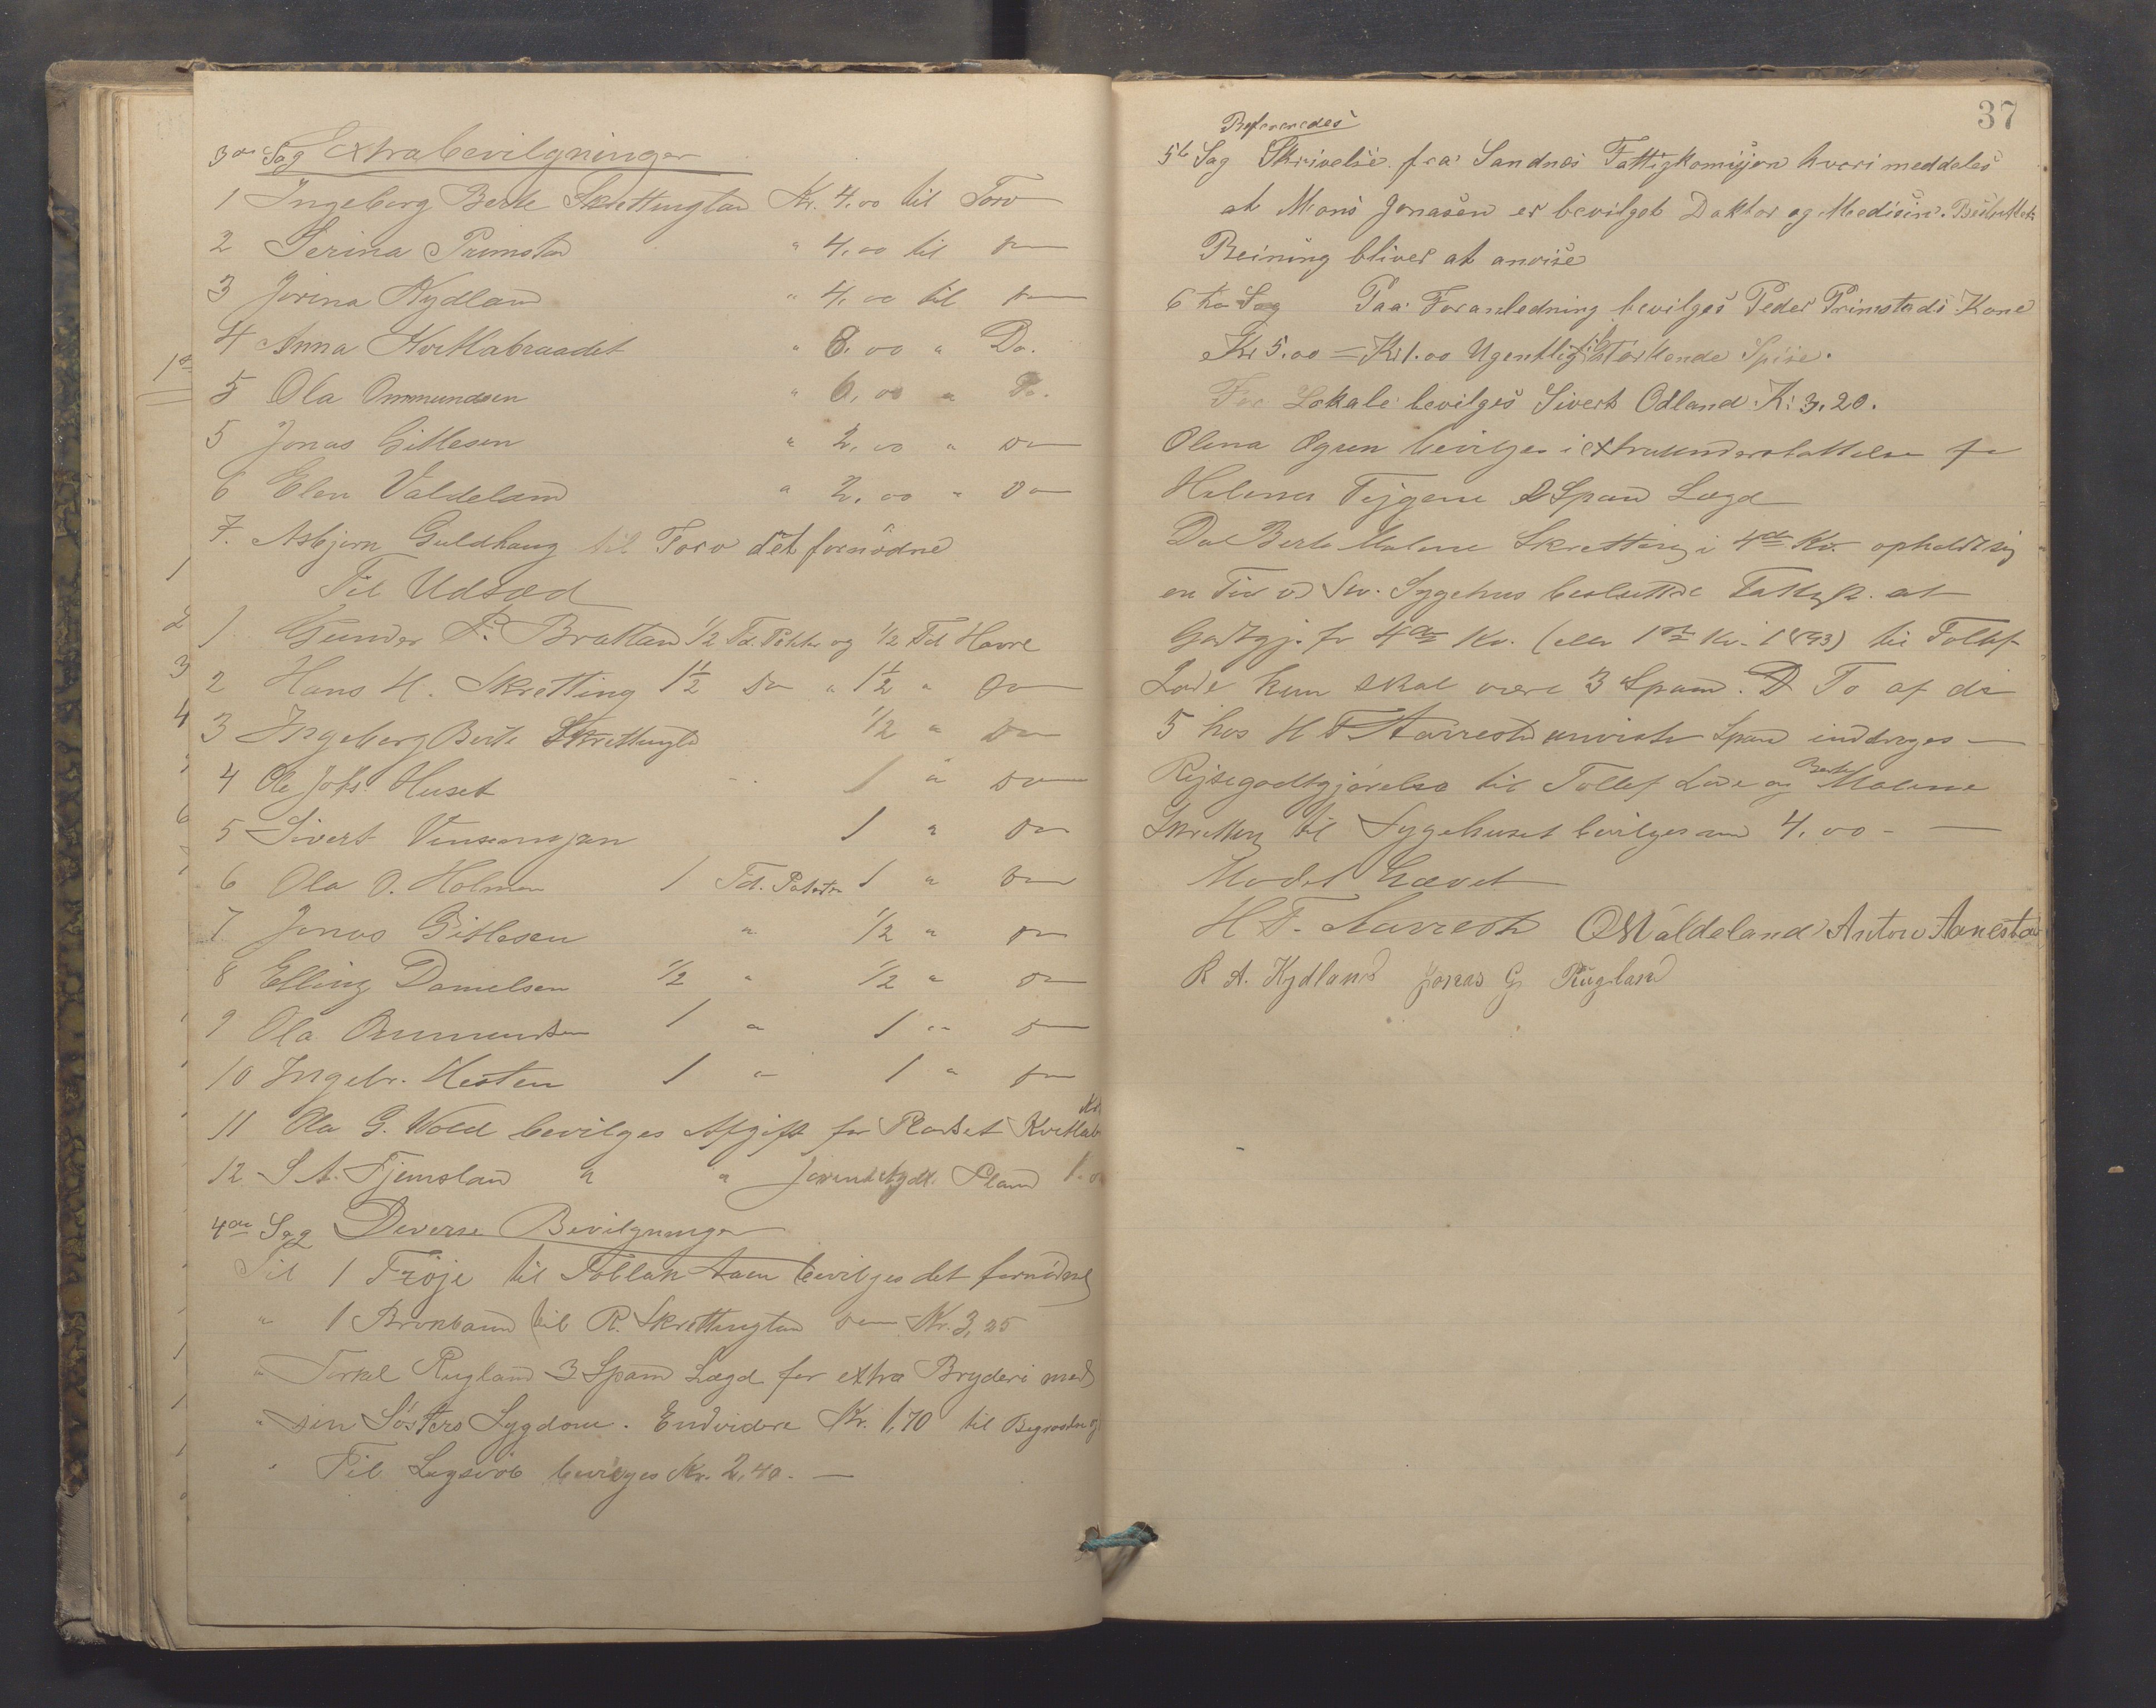 3die Sag Extrabevilgninger
1 Ingeborg Berte Skrettingland Kr. 4.00 til Torv
2 Serina Primstad " 4,00 til Do
3 Jorina Kydland " 4,00 til Do
4 Anna Kvitlabraadet " 8,00 " Do.
5 Ola Ommundsen " 6,00 " Do.
5 Jonas Gitlesen " 2,00 " Do
6 Elen Valdeland " 2,00 " Do
7. Asbjørn Guldhaug til Torv det fornødne
Til Udsæd
1 Gunder P. Brattland 1/2 Td. Poteter og 1/2 Td Havre
2 Hans H. Skretting 1 1/2 Do " 1 1/2 " Do
3 Ingeborg Berte Skrettingld 1/2 " Do
4 Ole Johs. Huset 1 " Do
5 Sivert 1 " Do
6 Ola O. Holmen 1 Td. Poteter 1 " Do
7 Jonas Gitlesen " 1/2 " Do
8 Elling Danielsen 1/2 " 1/2 " Do
9 Ola Ommundsen 1 " 1 " Do
10 Ingebr. Hesten 1 " 1 " Do
11 Ola G. Wold bevilges Afgift for Pladset Kvitlab
12 S A. Fjemsland " " Plads 1.0
4de Sag Diverse Bevilgninger
Til 1 Trøje til Tollak Aaen bevilges det fornødne
" 1 Brokbaand til R. Skrettingland Do Kr. 3,25
" Torkel Rugland 3 Spand Lægd for extra Bryderi med
" sin Søsters Sygdom. Endvidere Kr. 1,70 til
" Til bevilges Kr. 2,40. —
37
Refereredes
5te Sag Skrivelse fra Sandnes Fattigkomisjon hvori meddeles
at Mons Jonasen er bevilget Doktor og Medisin. Besluttet
Reining bliver at anvise
6te Sag Paa Foranledning bevilges Peder Primstads Kone
Kr 5.00 = Kr 1.00 Ugentlig til styrkende Spise.
For Lokale bevilges Sivert Odland Kr 3.20.
Olena Ogren bevilges i extraunderstøttelse for
Helena 2 Spand Lægd
Da Berte Malene Skretting i 4de Kv. opholdt sig
en Tid v Sv. Sygehus besluttede Fattigk. at
Godtgj. for 4de Kv. (eller 1ste Kv. 1893) til Tollef
Lode kun skal være 3 Spand. To af de
5 hos H F Aarrestd anviste Spand inddrages —
Rejsegodtgjørelse til Tollef Lode og Berte Malene
Skretting til Sygehuset bevilges med 4,00 —
Mødet hævet
H F. Aarrestd O M Valdeland Anton Aanestad
R A. Kydland Jonas G Rugland